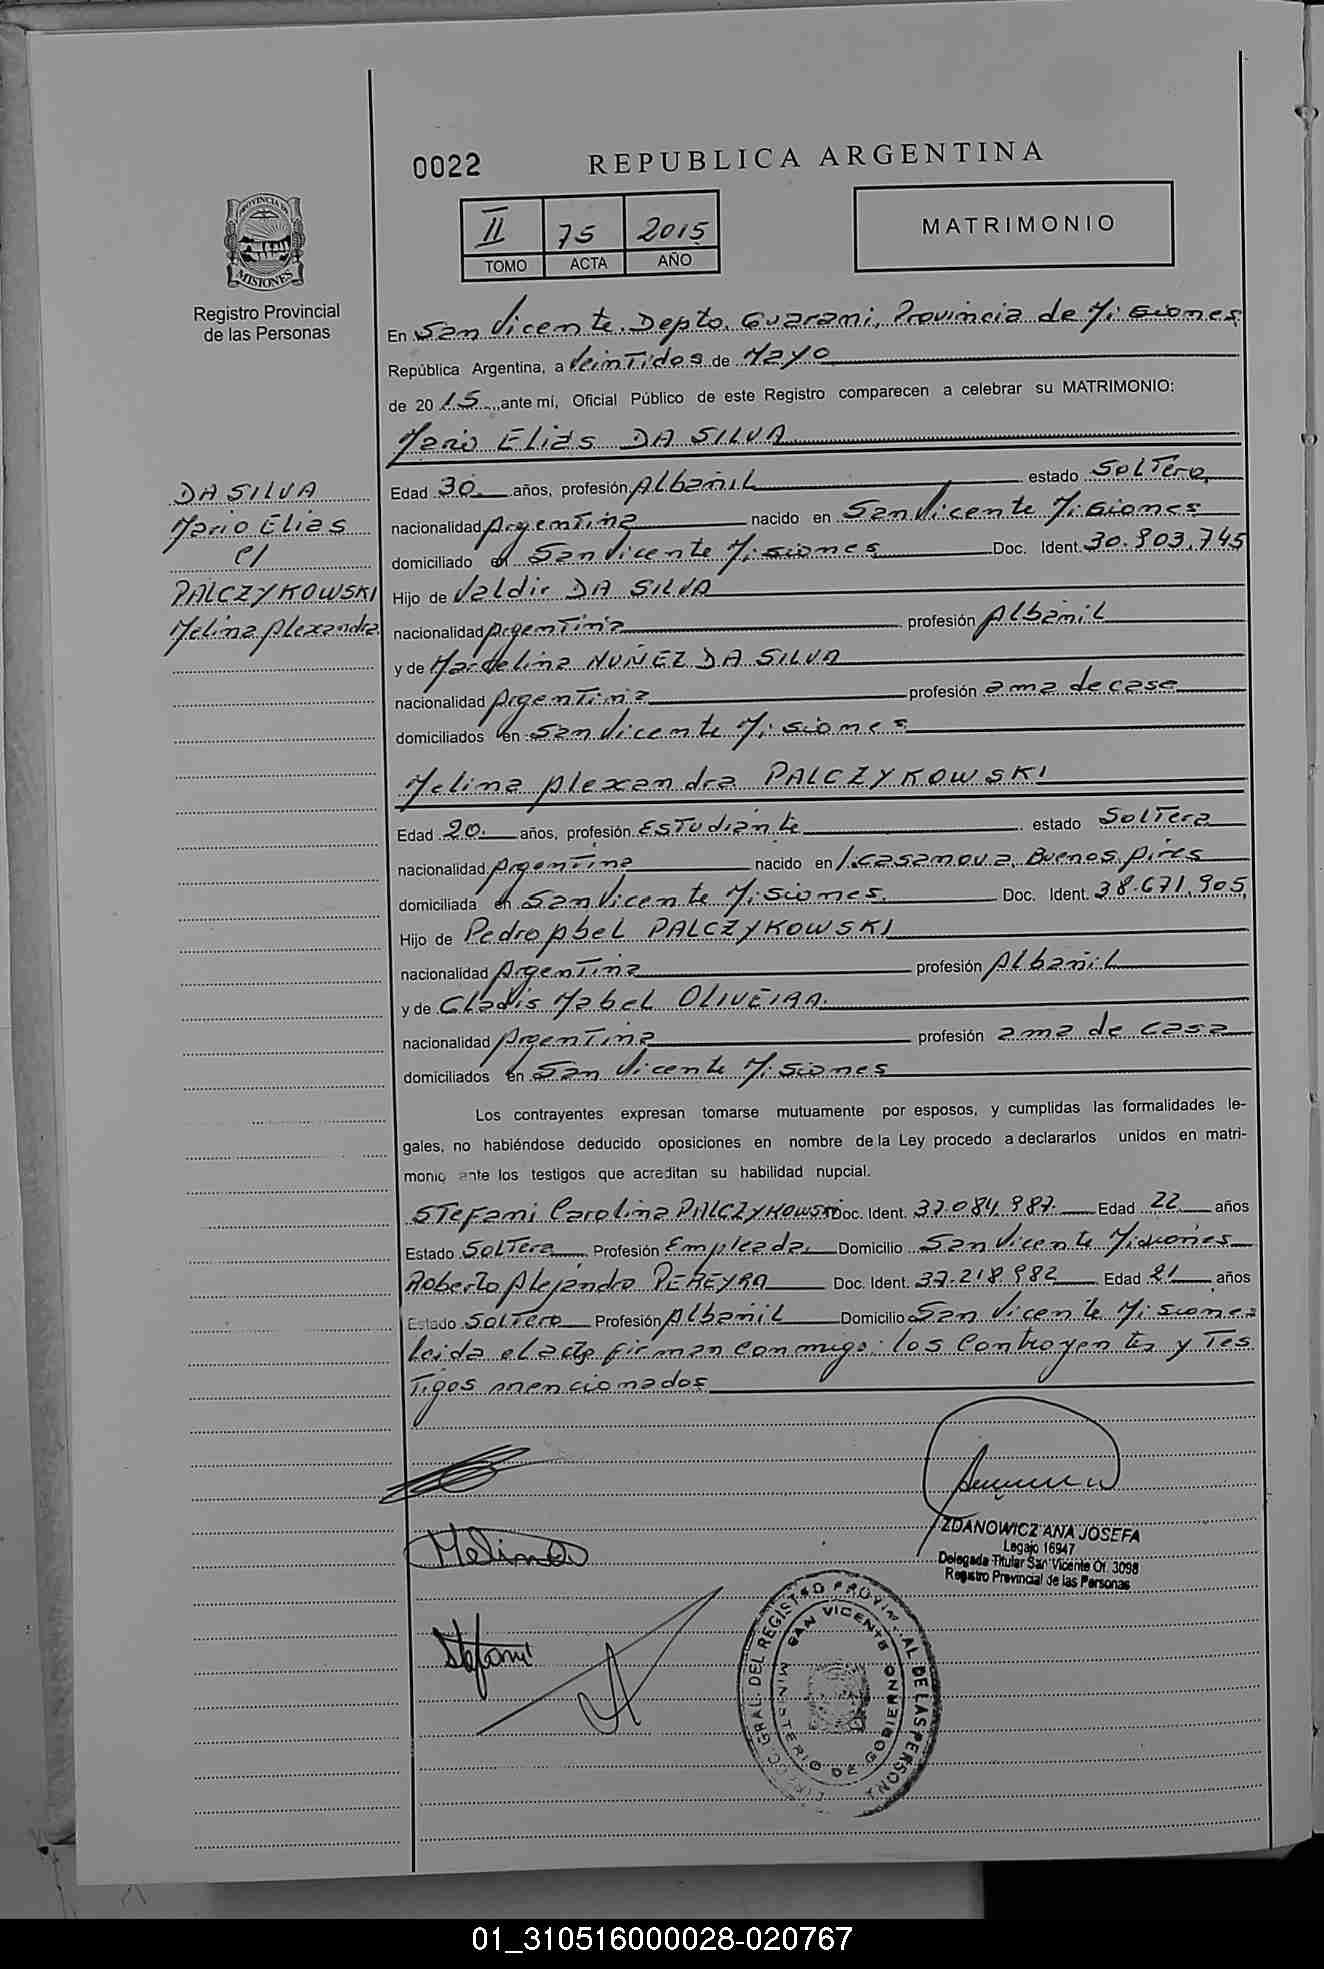 0022
REPUBLICA ARGENTINA
PROVINCIA DE
MISIONES
Registro Provincial
de las Personas
II 75 2015
TOMO ACTA AÑO
MATRIMONIO
En San Vicente. Depto. Guarani, Provincia de Misiones
República Argentina, a Veintidos de Mayo
de 2015 ante mí, Oficial Público de este Registro comparecen a celebrar su MATRIMONIO:
Mario Elias DA SILVA
DA SILVA
Mario Elias
c/
PALCZYKOWSKI
Melina Alexandra
Edad 30 años, profesión Albañil estado Soltero
nacionalidad Argentina nacido en San Vicente Misiones
domiciliado en San Vicente Misiones Doc. Ident. 30.903.745
Hijo de Valdir DA SILVA
nacionalidad Argentina profesión Albañil
y de Mardelina NUÑEZ DA SILVA
nacionalidad Argentina profesión ama de casa
domiciliados en San Vicente Misiones
Melina Alexandra PALCZYKOWSKI
Edad 20 años, profesión Estudiante estado Soltera
nacionalidad Argentina nacido en I. Casanova, Buenos Aires
domiciliada en San Vicente Misiones. Doc. Ident. 38.671.905
Hijo de Pedro Abel PALCZYKOWSKI
nacionalidad Argentina profesión Albañil
y de Gladis Mabel OLIVEIRA
nacionalidad Argentina profesión ama de casa
domiciliados en San Vicente Misiones
Los contrayentes expresan tomarse mutuamente por esposos, y cumplidas las formalidades le-
gales, no habiéndose deducido oposiciones en nombre de la Ley procedo a declararlos unidos en matri-
monio ante los testigos que acreditan su habilidad nupcial.
Stefani Carolina PALCZYKOWSKI Doc. Ident. 37.084.987 Edad 22 años
Estado Soltera Profesión Empleada Domicilio San Vicente Misiones
Roberto Alejandro PEREYRA Doc. Ident. 37.218.982 Edad 21 años
Estado Soltero Profesión Albañil Domicilio San Vicente Misiones
leida el acta firman conmigo: los Contrayentes y Tes
Tigos mencionados
Melina
Stefani
ZDANOWICZ ANA JOSEFA
Legajo 16947
Delegada Titular San Vicente Of. 3098
Registro Provincial de las Personas
GRAL. DEL REGISTRO PROVINCIAL DE LAS PERSONAS
SAN VICENTE
MINISTERIO DE GOBIERNO
01_310516000028-020767